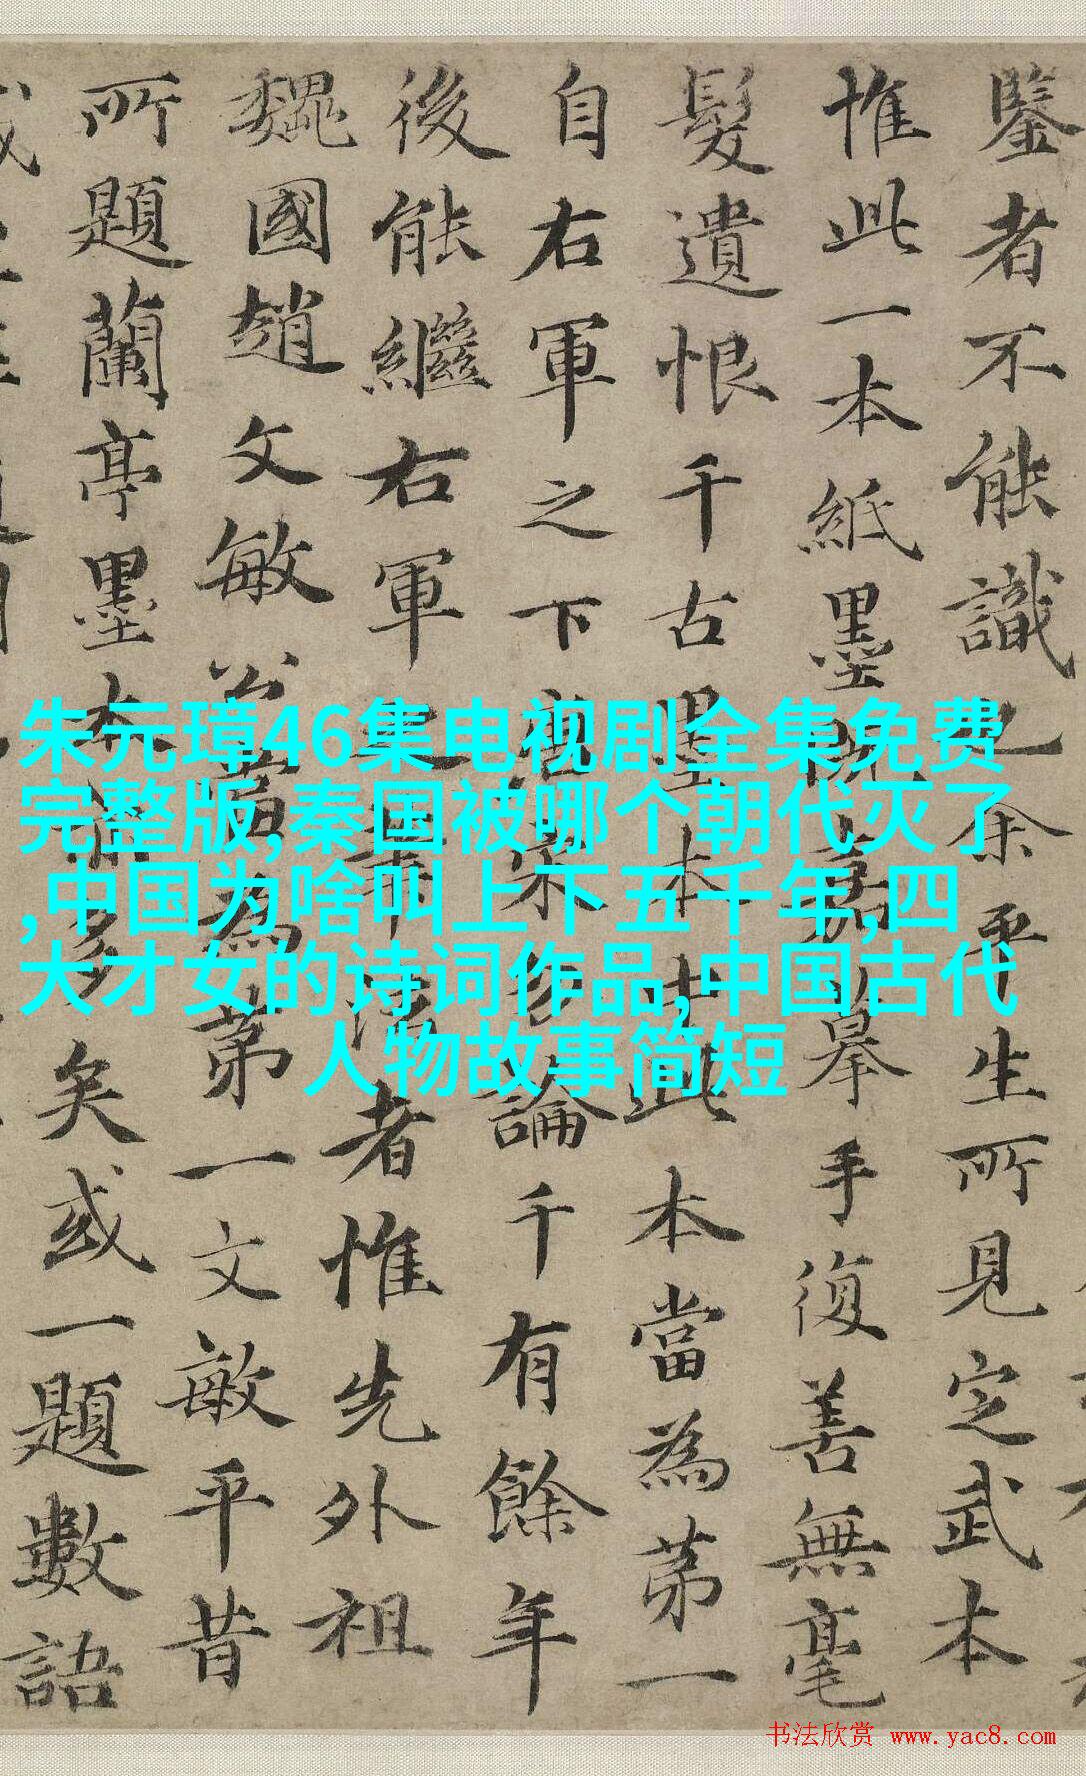 鑒者不能識之余平生所見定武本
惟此一本紙墨既嘉摹手復善無毫
髮遺恨千古墨本中此本當為第一
自右軍之下唐宋勿論千有餘年
後能繼右軍之筆法者惟先外祖
魏國趙文敏公當為第一文敏平昔
所題蘭亭墨本何多矣或一題數語
朱元璋46集电视剧全集免费
完整版,秦国被哪个朝代灭了
,中国为啥叫上下五千年,四
大才女的诗词作品,中国古代
人物故事简短
书法欣赏 www.yac8.com